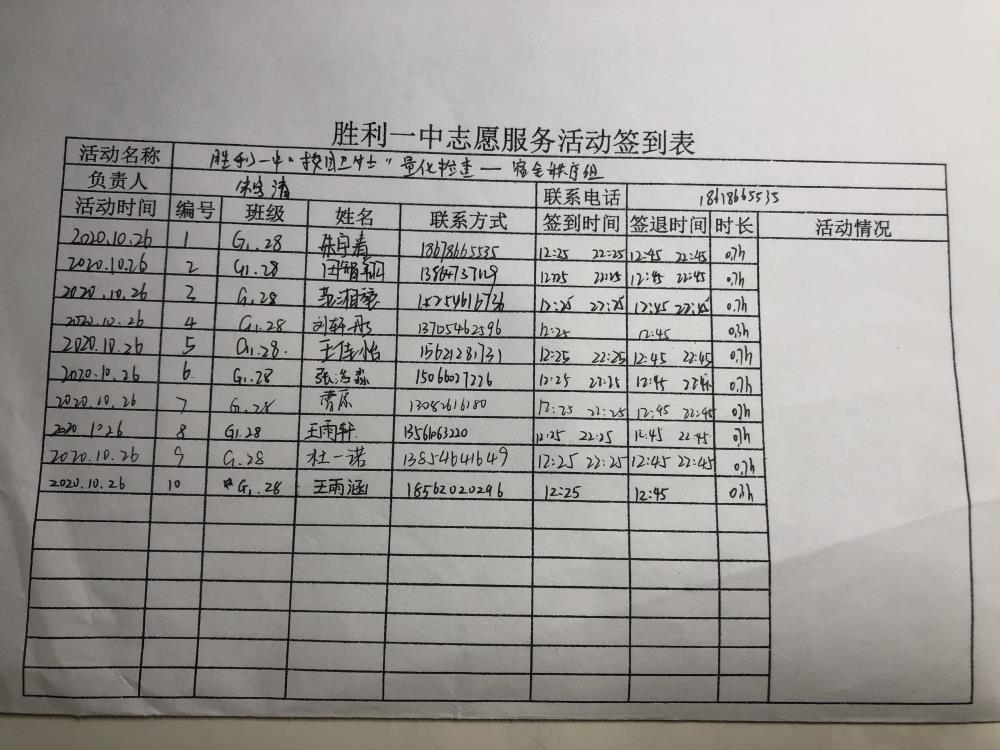 胜利一中志愿服务活动签到表
活动名称 胜利一中"校园卫士"量化检查—宿舍秩序组
负责人 清 联系电话 18678665535
活动时间 编号 班级 姓名 联系方式 签到时间 签退时间 时长 活动情况
2020.10.26 1 G1.28 清 18678665535 12:25 22:25 12:45 22:45 0.7h
2020.10.26 2 G1.28 12:25 22:25 12:45 22:45 0.7h
2020.10.26 3 G1.28 12:25 22:25 12:45 22:45 0.7h
2020.10.26 4 G1.28 刘轩彤 13705462596 12:25 12:45 0.3h
2020.10.26 5 G1.28. 王佳怡 15621281731 12:25 22:25 12:45 22:45 0.7h
2020.10.26 6 G1.28 张浩淼 15066027226 12:25 22:25 12:45 22:45 0.7h
2020.10.26 7 G1.28 12:25 22:25 12:45 22:45 0.7h
2020.10.26 8 G1.28 王雨轩 13561063220 12:25 22:25 12:45 22:45 0.7h
2020.10.26 9 G1.28 杜一诺 13854641649 12:25 22:25 12:45 22:45 0.7h
2020.10.26 10 G1.28 王雨涵 18562020296 12:25 12:45 0.3h